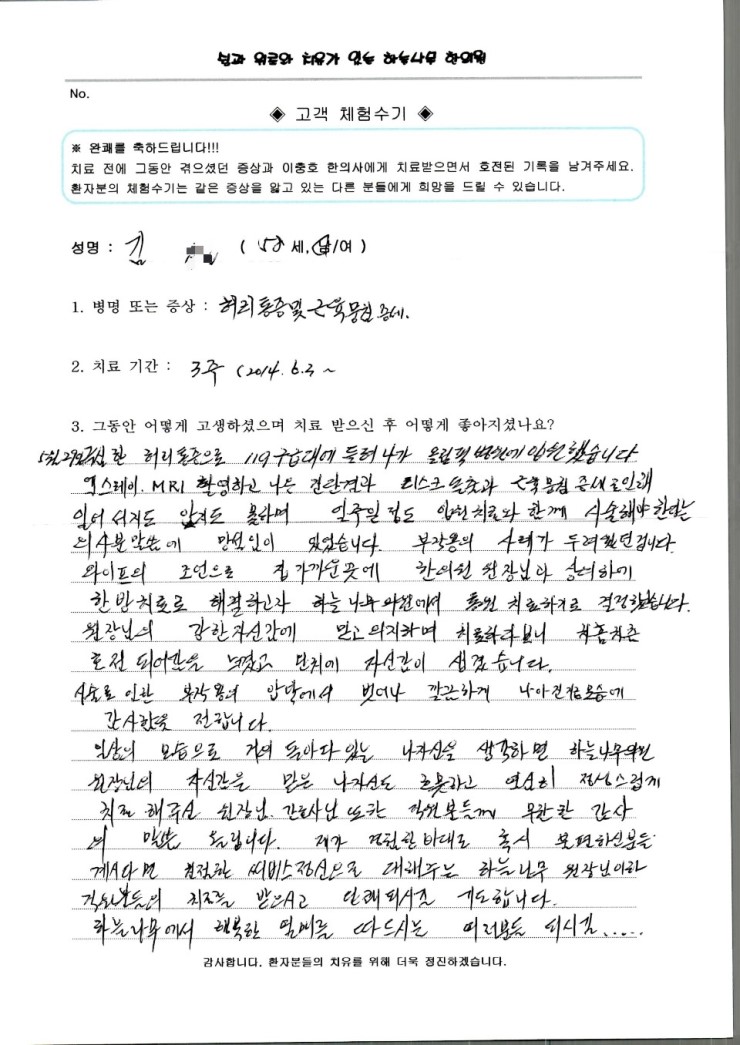 No.
◈ 고객 체험수기 ◈
※ 완쾌를 축하드립니다!!!
치료 전에 그동안 겪으셨던 증상과 이충호 한의사에게 치료받으면서 호전된 기록을 남겨주세요.
환자분의 체험수기는 같은 증상을 앓고 있는 다른 분들에게 희망을 드릴 수 있습니다.
성명 : 김 ( 58 세, 남/여 )
1. 병명 또는 증상 : 허리통증및 근육뭉침 증세.
2. 치료 기간 : 3주 (2014. 6.3 ~
3. 그동안 어떻게 고생하셨으며 치료 받으신 후 어떻게 좋아지셨나요?
허리통증으로 119 구급대에 들려 나가 올림픽 병원에 입원했습니다
엑스레이. MRI 촬영하고 나온 진단결과 디스크 돌출과 근육뭉침 증세로인해
일어 서지도 앉지도 못하며 일주일 정도 입원치료와 함께 시술해야 한다는
의사분 말씀에 망설임이 있었습니다. 부작용의 사례가 두려웠던겁니다.
와이프의 조언으로 집 가까운곳에 한의원 원장님과 상의하에
한방치료로 해결하고자 하늘나무 의원에서 통원 치료하기로 결정했습니다.
원장님의 강한자신감에 믿고 의지하며 치료하다보니 차츰차츰
호전 되어감을 느꼈고 단처에 자신감이 생겼습니다.
시술로 인한 부작용의 압박에서 벗어나 깔끔하게 나아진 모습에
감사함을 전합니다.
일상의 모습으로 거의 돌아다 있는 나자신을 생각하면 하늘나무의원
원장님의 자신감을 믿은 나자신도 흐뭇하고 열심히 정성스럽게
치료 해주신 원장님. 간호사님 또한 직원분들께 무한한 감사
의 말씀 드립니다. 제가 경험한바대로 혹시 불편하신분들
계시다면 친절한 써비스정신으로 대해주는 하늘나무 원장님이하
직원분들의 치료를 받으시고 완쾌되시길 기도합니다.
하늘나무에서 행복한 열매를 따드시는 여러분들 되시길.....
감사합니다. 환자분들의 치유를 위해 더욱 정진하겠습니다.